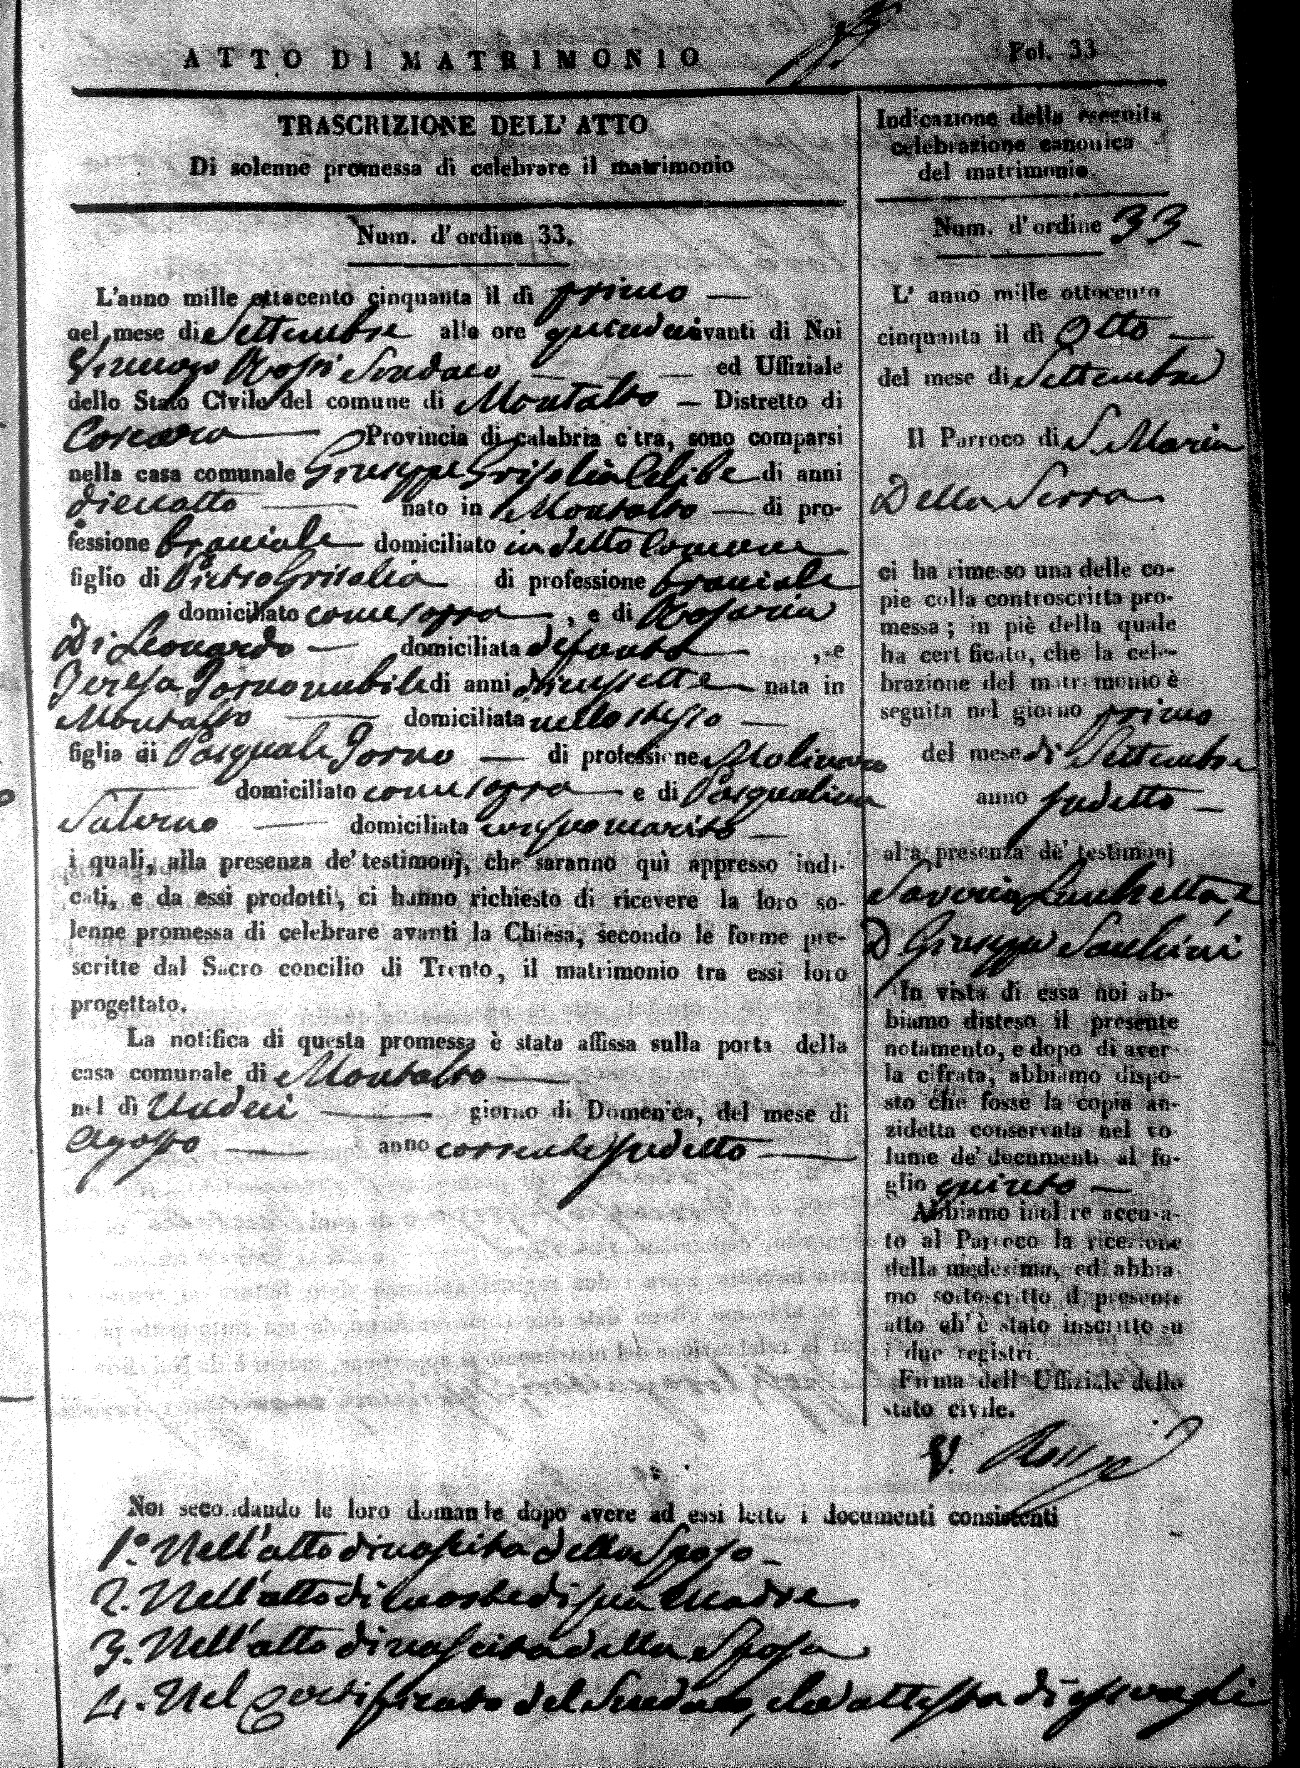 ATTO DI MATRIMONIO
Fol. 33
TRASCRIZIONE DELL' ATTO
Di solenne promessa di celebrare il matrimonio
Num. d'ordine 33.
L'anno mille ottocento cinquanta il dì primo
nel mese di Settembre alle ore quindici avanti di Noi
Rossi Sindaco ed Uffiziale
dello Stato Civile del comune di Montalto Distretto di
Provincia di calabria citra, sono comparsi
nella casa comunale Giuseppe Grisolia Celibe di anni
dieciotto nato in Montalto di pro-
fessione bracciale domiciliato in detto Comune
figlio di Pietro Grisolia di professione bracciale
domiciliato come sopra, e di Rosaria
Di Leonardo domiciliata defunta, e
Teresa Torno nubile di anni diciassette nata in
Montalto domiciliata nello stesso
figlia di Pasquale Torno di professione Molinaro
domiciliato come sopra e di Pasqualina
Salerno domiciliata con suo marito
i quali, alla presenza de' testimonj, che saranno quì appresso indi-
cati, e da essi prodotti, ci hanno richiesto di ricevere la loro so-
lenne promessa di celebrare avanti la Chiesa, secondo le forme pre-
scritte dal Sacro concilio di Trento, il matrimonio tra essi loro
progettato.
La notifica di questa promessa è stata affissa sulla porta della
casa comunale di Montalto
nel dì Undeci giorno di Domenica, del mese di
Agosto anno corrente sudetto
Indicazione della seguita
celebrazione canonica
del matrimonio.
Num. d'ordine 33
L' anno mille ottocento
cinquanta il dì Otto
del mese di Settembre
Il Parroco di S. Maria
Della Serra
ci ha rimesso una delle co-
pie colla controscritta pro-
messa; in piè della quale
ha certificato, che la cele-
brazione del matrimonio è
seguita nel giorno primo
del mese di Settembre
anno sudetto
alla presenza de' testimonj
Saverio
D. Giuseppe
In vista di essa noi ab-
biamo disteso il presente
notamento, e dopo di aver-
la cifrata, abbiamo dispo-
sto che fosse la copia an-
zidetta conservata nel vo-
lume de' documenti al fo-
glio quinto
Abbiamo inoltre accusa-
to al Parroco la ricezione
della medesima, ed abbia-
mo sottoscritto il presente
atto ch' è stato inscritto su
i due registri.
Firma dell' Uffiziale dello
stato civile.
V. Rossi
Noi secondando le loro domande dopo avere ad essi letto i documenti consistenti
1.° Nell'atto di nascita dello Sposo
2. Nell'atto di morte di sua Madre
3. Nell'atto di nascita della Sposa
4. Nel Certificato del Sindaco, che attesta di essersegli